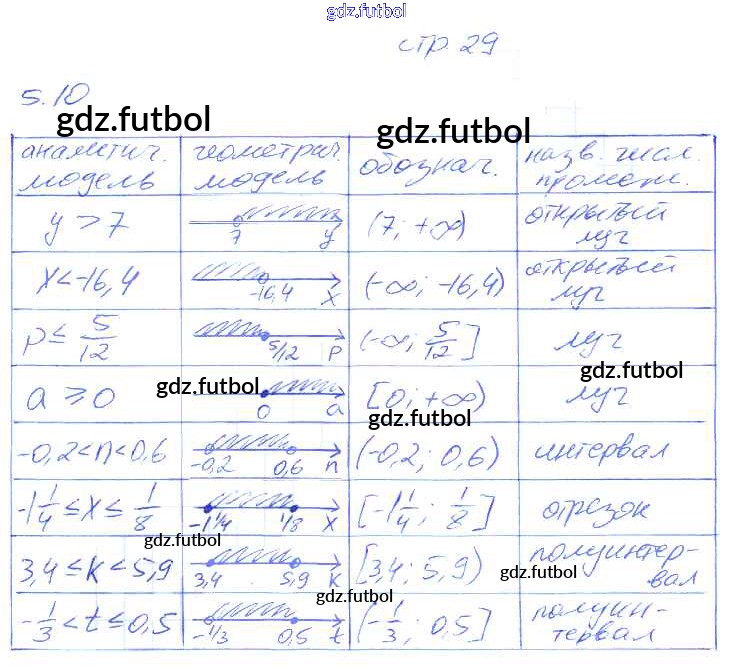 gdz.futbol
стр 29
5.10
gdz.futbol
gdz.futbol
аналитич. модель | геометрич. модель | обознач. | назв. числ. промеж.
y > 7 | 7 y | (7; +∞) | открытый луч
x < -16,4 | -16,4 x | (-∞; -16,4) | открытый луч
p ≤ 5/12 | 5/12 p | (-∞; 5/12] | луч
gdz.futbol
gdz.futbol
a ≥ 0 | 0 a | [0; +∞) | луч
gdz.futbol
-0,2 < n < 0,6 | -0,2 0,6 n | (-0,2; 0,6) | интервал
-1 1/4 ≤ x ≤ 1/8 | -1 1/4 1/8 x | [-1 1/4; 1/8] | отрезок
gdz.futbol
3,4 ≤ k < 5,9 | 3,4 5,9 k | [3,4; 5,9) | полуинтер-вал
gdz.futbol
gdz.futbol
-1/3 < t ≤ 0,5 | -1/3 0,5 t | (-1/3; 0,5] | полуин-тервал